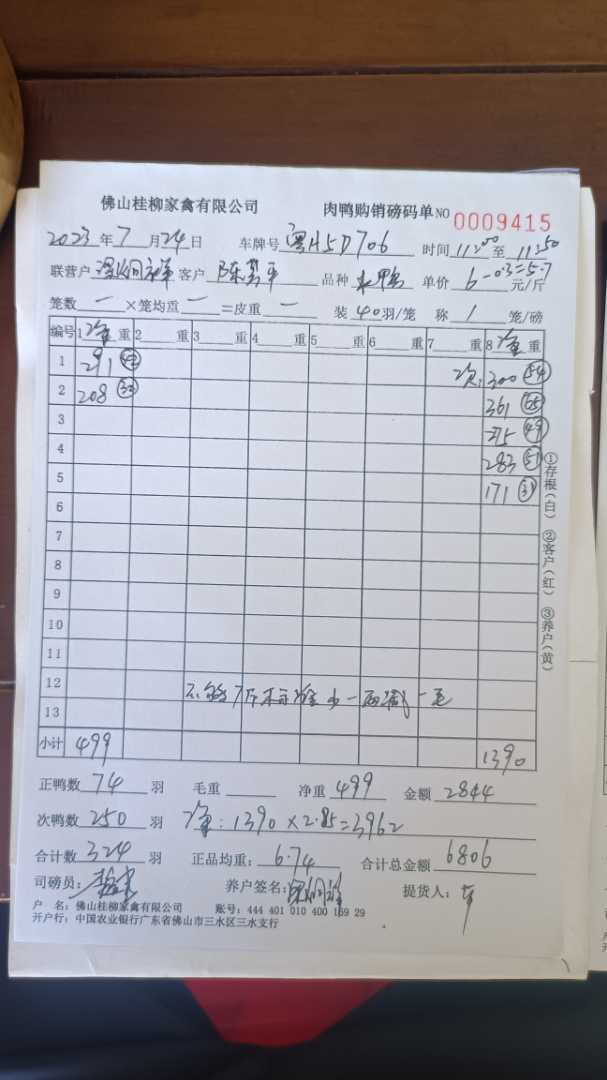 佛山桂柳家禽有限公司 肉鸭购销磅码单 NO 0009415
2023年7月24日 车牌号 粤H5D706 时间 11:00 至 11:50
联营户 客户 陈 平 品种 水鸭 单价 6-0.3=5.7 元/斤
笼数 一 ×笼均重 一 =皮重 一 装 40 羽/笼 称 1 笼/磅
编号 1 净 重 2 重 3 重 4 重 5 重 6 重 7 重 8 净 重
1 291 次: 300 54
2 208 33 361 65
3 275 49
4 283 51
5 171 31
6
7
8
9
10
11
12 不够7斤标准少一两减一毛
13
小计 499 1390
①存根(白) ②客户(红) ③养户(黄)
正鸭数 74 羽 毛重 净重 499 金额 2844
次鸭数 250 羽 净:1390×2.85=3962
合计数 324 羽 正品均重: 6.74 合计总金额 6806
司磅员: 养户签名: 提货人:
户 名:佛山桂柳家禽有限公司 账号:444 401 010 400 169 29
开户行:中国农业银行广东省佛山市三水区三水支行